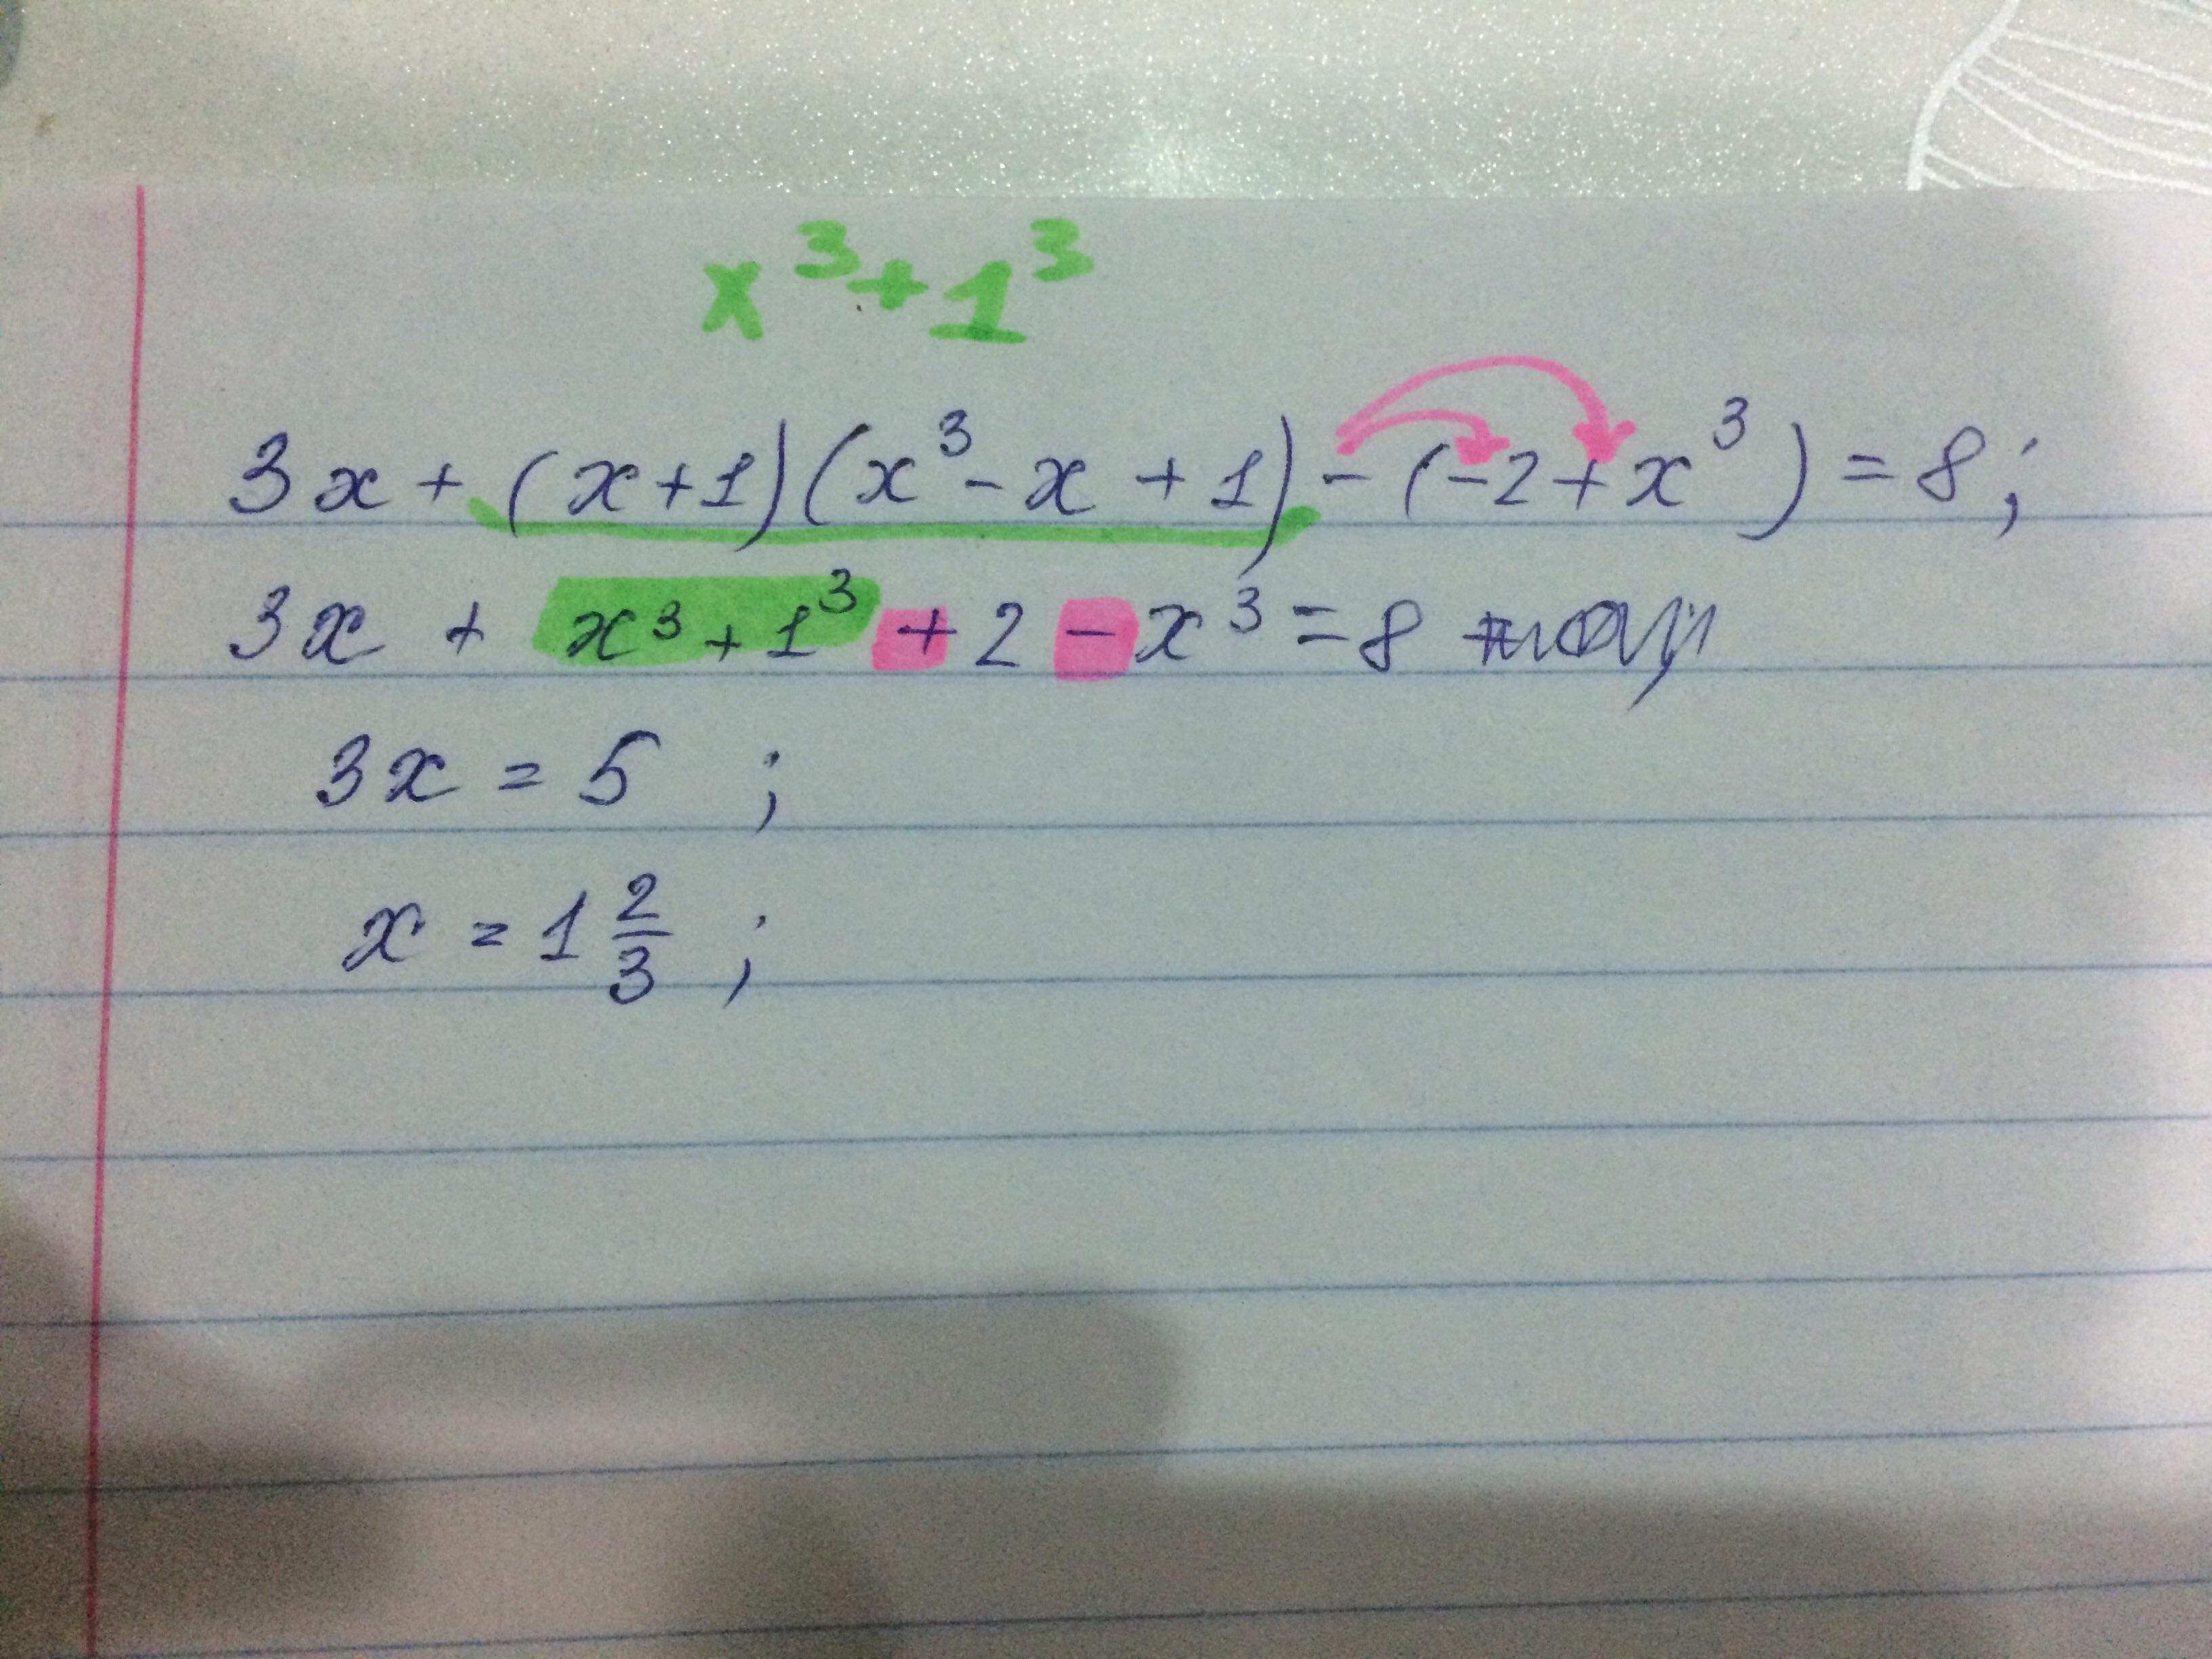 x³+1³
3x+(x+1)(x³-x+1)-(-2+x³)=8;
3x + x³+1³+2-x³=8
3x=5 ;
x=1 2/3 ;